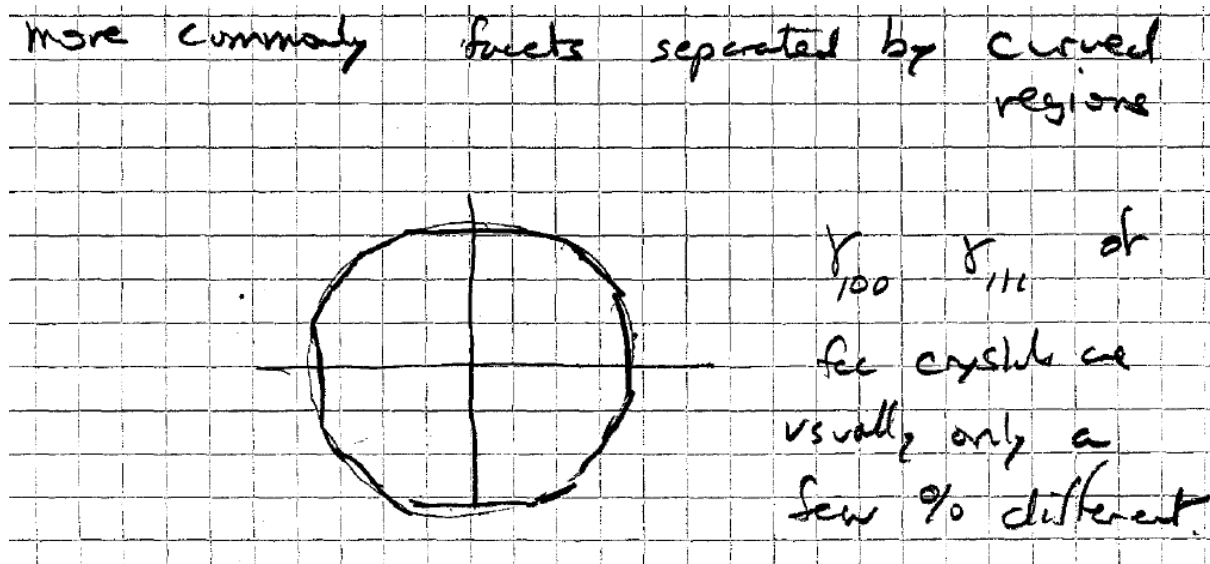 more commonly facets separated by curved
regions
γ₁₀₀ γ₁₁₁ of
fcc crystals are
usually only a
few % different.